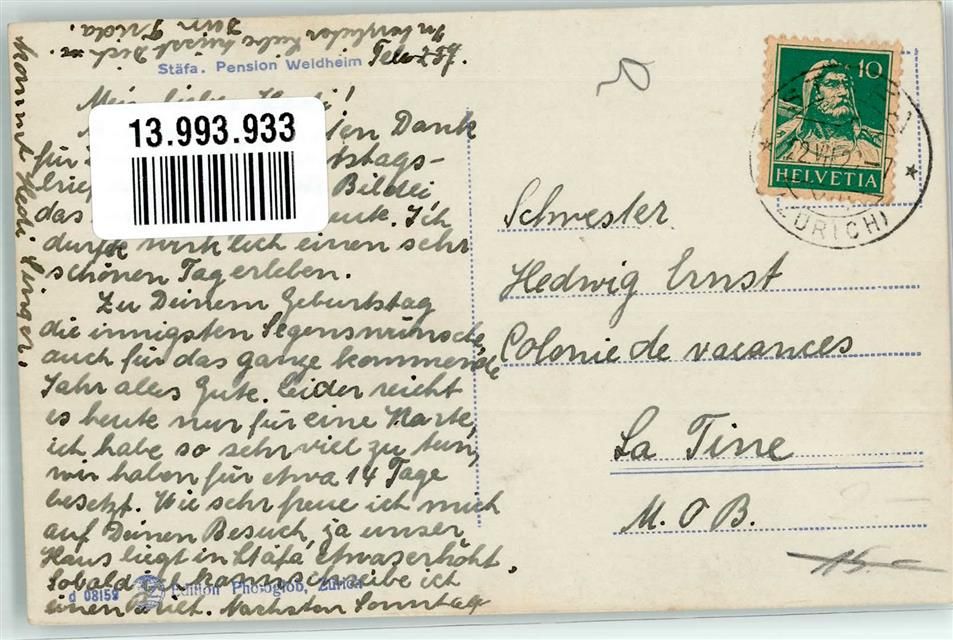 Stäfa. Pension Weidheim Tele 287.
Mein liebe Hedi!
13.993.933
Dank
für
tstags-
Bilder,
das
Ich
durfte wirklich einen sehr
schönen Tag erleben.
Zu Deinem Geburtstag
die innigsten Segenswünsche,
auch für das ganze kommende
Jahr alles Gute. Leider reicht
es heute nur für eine Karte,
ich habe so sehr viel zu tun,
wir haben für etwa 14 Tage
besetzt. Wie sehr freue ich mich
auf Deinen Besuch, ja unser
Haus liegt in Stäfa etwas erhöht.
Sobald ich kann schreibe ich
einen Brief. Nächsten Sonntag
kommt Hedi
In herzlicher Liebe grüsst Dich
Frida.
d 08159 Edition Photoglob, Zürich
10
HELVETIA
22.VII
(ZÜRICH)
Schwester
Hedwig Ernst
Colonie de vacances
La Tine
M.O B.
15.-